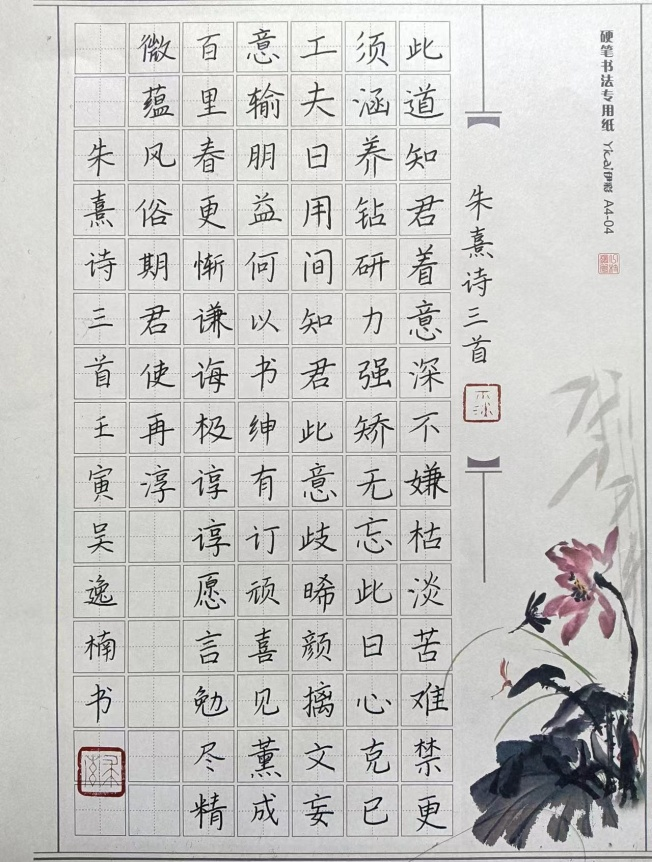 硬笔书法专用纸 Yikai A4-04
朱熹诗三首
此道知君着意深不嫌枯淡苦难禁更
须涵养钻研力强矫无忘此日心克已
工夫日用间知君此意歧晞颜摛文妄
意输朋益何以书绅有订顽喜见薰成
百里春更惭谦诲极谆谆愿言勉尽精
微蕴风俗期君使再淳
朱熹诗三首壬寅吴逸楠书